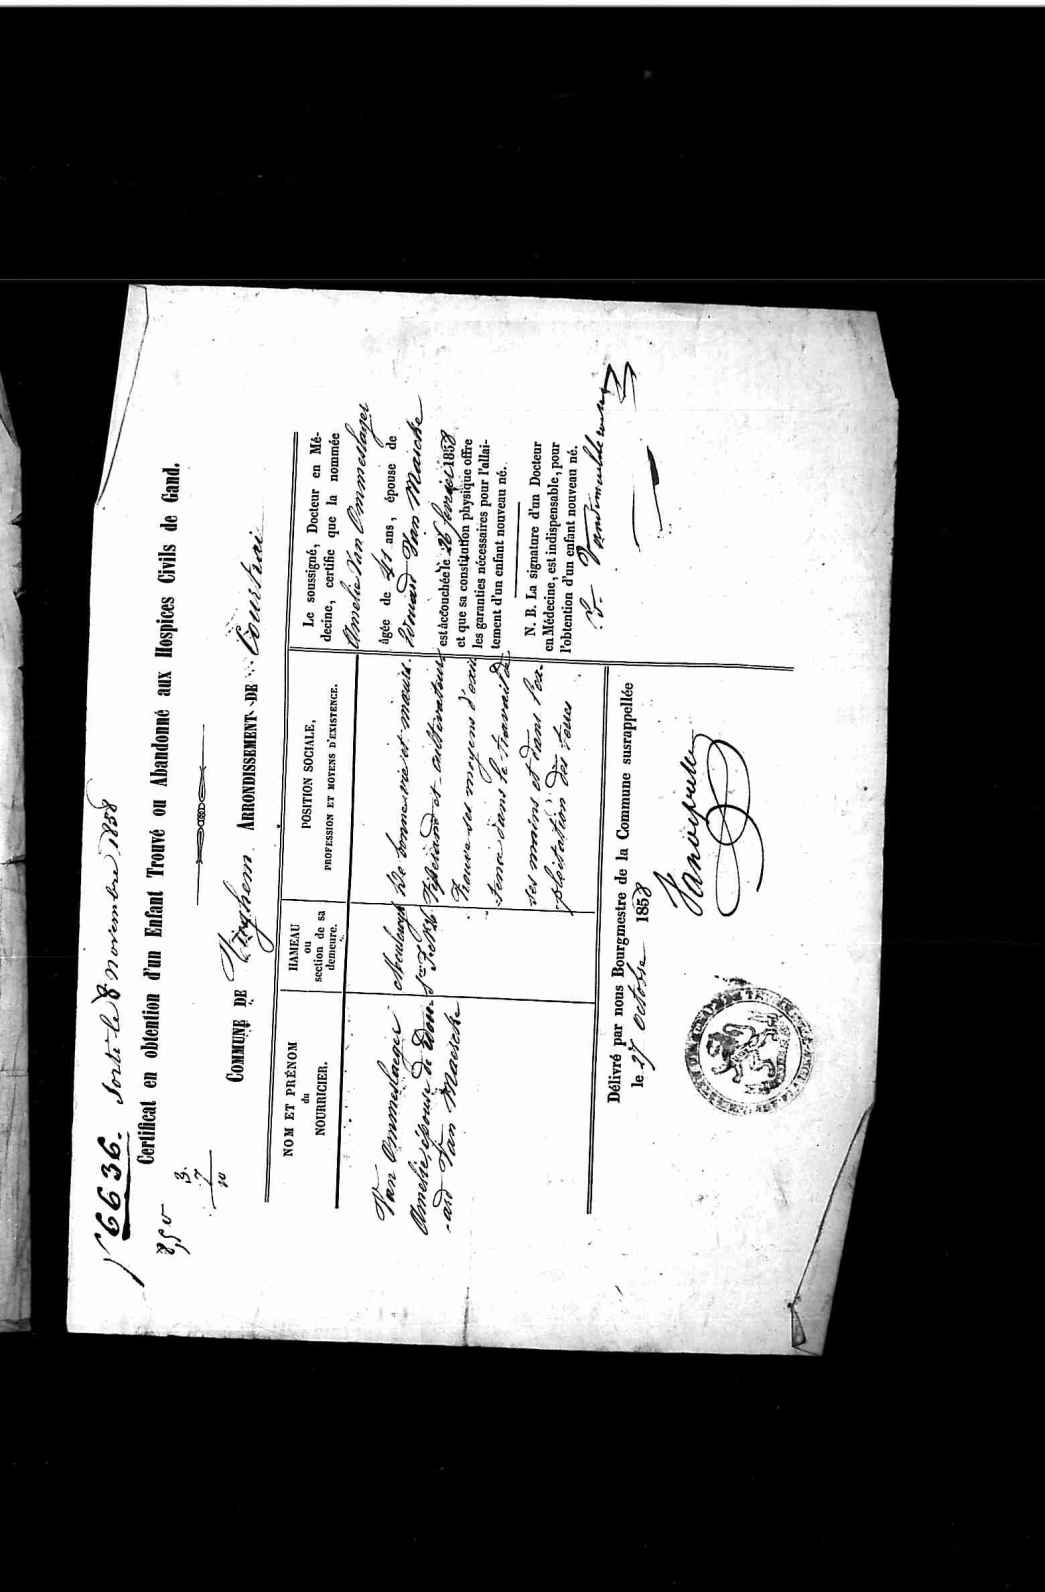 6636. Sorti le 8 novembre 1858
Certificat en obtention d'un Enfant Trouvé ou Abandonné aux Hospices Civils de Gand.
3.
7
10
COMMUNE DE ARRONDISSEMENT DE Courtrai
NOM ET PRÉNOM
du
NOURRICIER.
Van Ommeslaege
Amelie, épouse de Edou-
ard Van Maescke
HAMEAU
ou
section de sa
demeure.
POSITION SOCIALE,
PROFESSION ET MOYENS D'EXISTENCE.
De bonne vie et mœurs.
Tisserand et cultivateur
trouve ses moyens d'exis
tence dans le travail de
ses mains et dans l'ex-
ploitation des
Le soussigné, Docteur en Mé-
decine, certifie que la nommée
Amelie Van Ommeslager
âgée de 41 ans, épouse de
Edouard Van Maescke
est accouchée le 26 février 1858
et que sa constitution physique offre
les garanties nécessaires pour l'allai-
tement d'un enfant nouveau né.
N. B. La signature d'un Docteur
en Médecine, est indispensable, pour
l'obtention d'un enfant nouveau né.
Délivré par nous Bourgmestre de la Commune susrappellée
le 27 octobre 1858